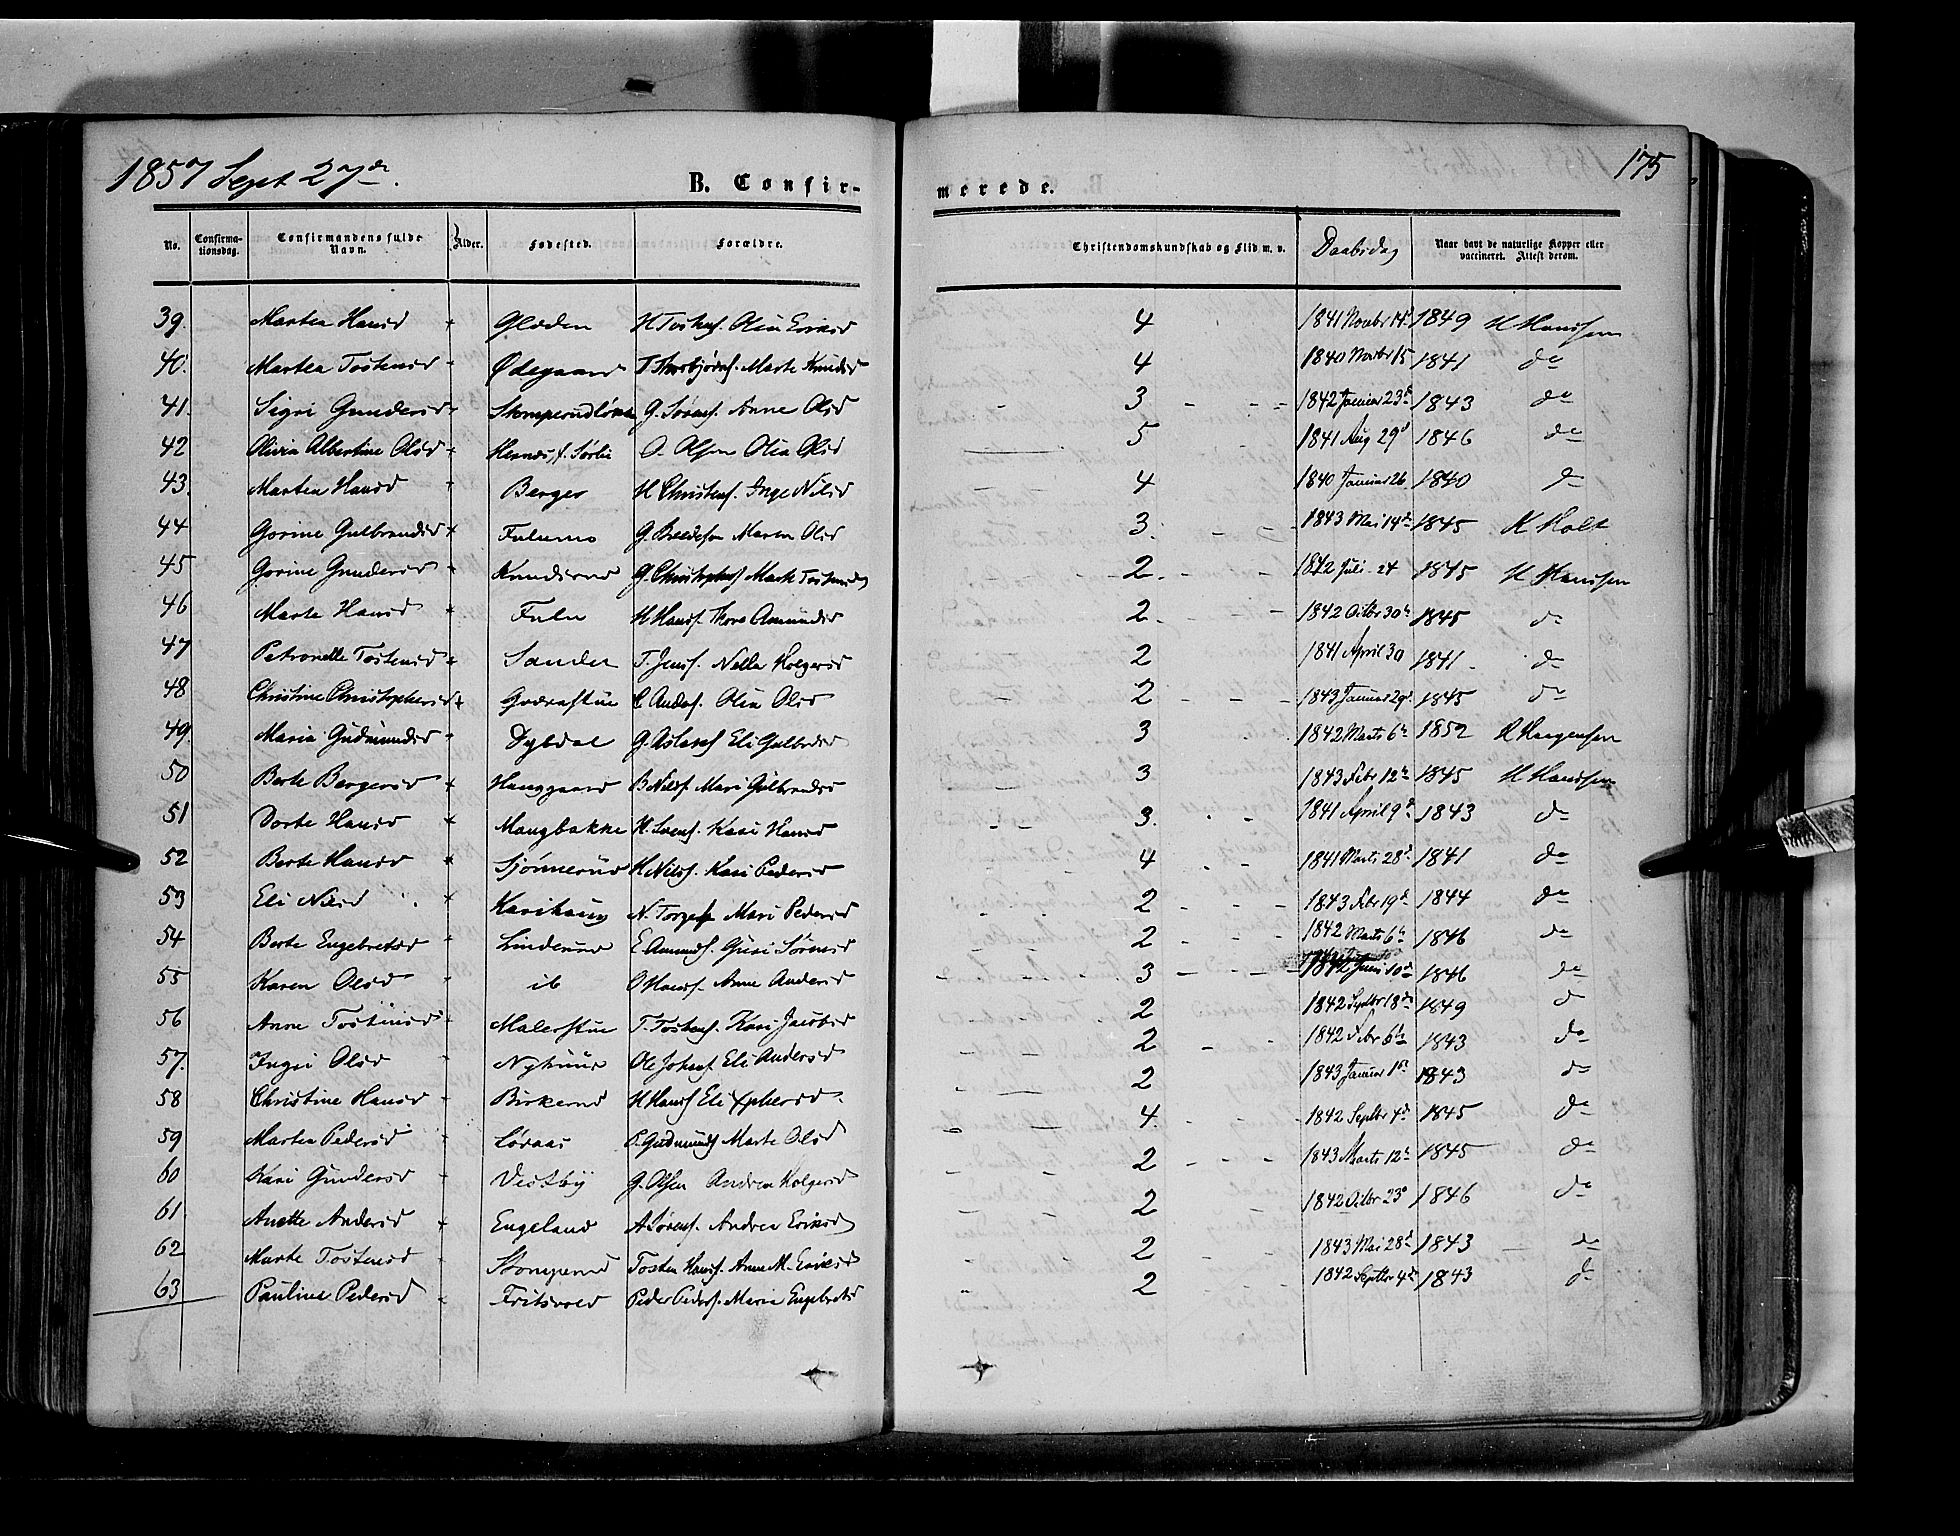 1857 Sept 27de.
B. Confir-
merede.
175
No. Confirmationsdag. Confirmandens fulde Navn. Alder. Fødested. Forældre. Christendomskundskab og Flid m. v. Daabsdag Naar havt de naturlige Kopper eller vaccineret. Attest derom.
39. Martea Hansd Gloden H Tostens. Olea Eriksd 4 1841 Novbr 14d 1849 H Hanssen
40. Martea Tostensd Ødegaard T. Thorbjørns. Marte Knudsd 4 1840 Novbr 15 1841 do
41. Sigri Gundersd G. Sørens. Anne Olsd 3 1842 Januar 23d 1843 do
42 Olivia Albertine Olsd O. Olsen Olea Olsd 5 1841 Aug 29d 1846 do
43. Martea Hansd Berger H Christens. Inge Nilsd 4 1840 Januar 26 1840 do
44 Gorine Gulbrandsd Fulumo G. Maren Olsd 3. 1843 Mai 14d 1845 K Holt
45 Gorine Gundersd Knudsrud G. Christophs Marte Tostensd 2. 1842 Juli 24 1845 H Hanssen
46 Marte Hansd Fulu H Hans. Thore Amundsd 2. 1842 Octbr 30te 1845 do
47 Petronelle Tostensd Sander T. Jens. Nella Holgersd 2 1841 April 30 1841. do
48 Christine Christophersd C Anders. Olea Olsd 2 1843 Januar 29d 1845 do
49. Maria Gudmundsd Dybdal G. Aslaks Eli Gulbrdsd 3 1842 Marts 6te 1852 H Haagensen
50 Berte Bergersd Hauggaard B Nils. Mari Gulbrandsd 3 1843 Febr 12te 1845 H Hanssen
51 Dorte Hansd Maugbakke H. Svens. Kari Hansd 3. 1841 April 9d 1843 do
52 Berte Hansd Sjønnerud H Nils. Kari Pedersd 4 1841 Marts 28d 1841 do
53 Eli Nilsd Karihaug N. Mari Pedersd 2 1843 Febr 19d 1844 do
54 Berte Engebretsd Linderud E Amunds. Guri Sørensd 2 1842 Marts 6te 1846 do
55 Karen Olsd ib O Hans. Anne Andersd 3 1842 Juni 10d 1846 do
56 Anne Tostensd Malerstue T. Tostens. Kari Jacobsd 2 1842 Septbr 18de 1849 do
57. Ingri Olsd Nyhuus Ole Johns. Eli Andersd 2 1842 Febr 6te 1843 do
58 Christine Hansd Birkerud H Hans Eli Xphersd. 2 1843 Januar 1st 1843 do
59 Martea Pedersd Løvaas P. Gudmunds Marte Olsd 4. 1842 Septbr 4d 1845 do
60 Kari Gundersd Vestby G. Olsen Andrea Holgersd 2 1843 Marts 12te 1845 do
61. Anette Andersd Engeland A Sørens. Andrea Eriksd 2 1842 Octbr 23d 1846 do
62 Marte Tostensd Stomperud Tosten Hans. Anne M. Eriksd 2 1843 Mai 28d 1843 do
63 Pauline Pedersd Fritsvold Peder Peders. Maria Engebretsd 2 1842 Septbr 4d 1843 do